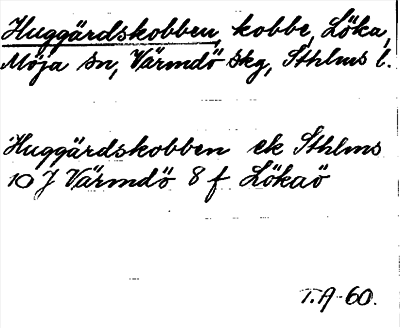 Huggärdskobben, kobbe, Löka,
Möja sn, Värmdö skg, Sthlms l.
Huggärdskobben ek Sthlms
10 J Värmdö 8 f Lökaö
T.A-60.